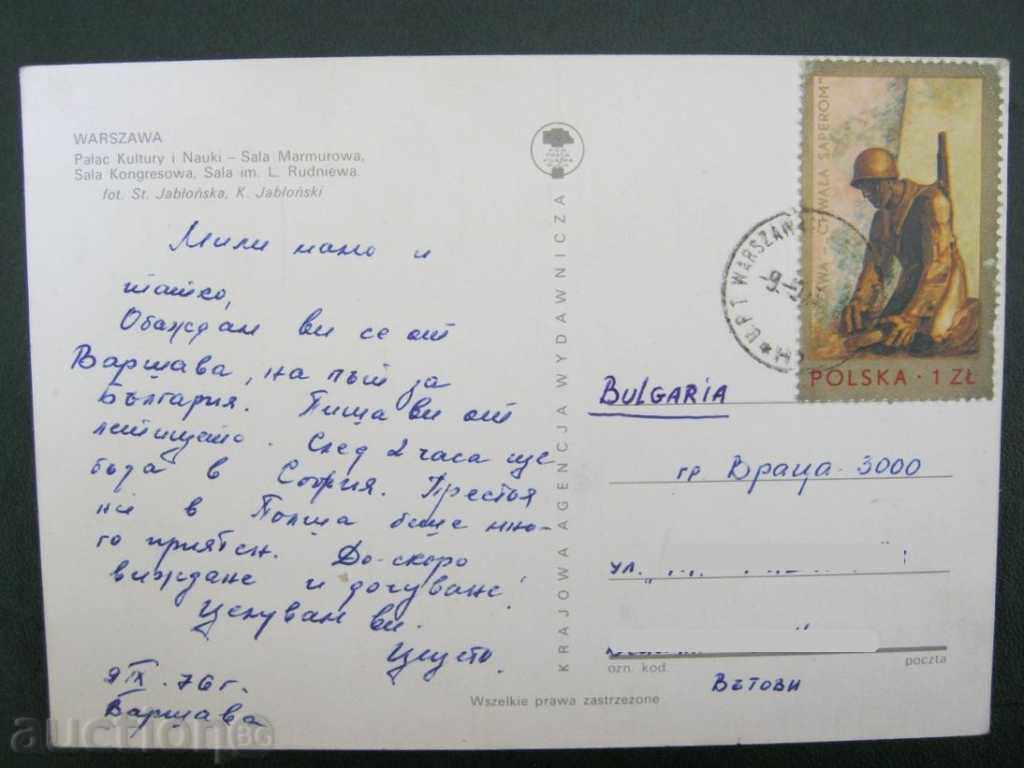 WARSZAWA
Pałac Kultury i Nauki – Sala Marmurowa,
Sala Kongresowa, Sala im. L. Rudniewa.
fot. St. Jabłońska, K. Jabłoński
Мили мамо и
татко,
Обаждам ви се от
Варшава, на път за
България. Пиша ви от
летището. След 2 часа ще
бъда в София. Престоя
ни в Полша беше мно-
го приятен. До-скоро
виждане и дочуване!
Целувам ви.
9 IX. 76 г.
Варшава
KRAJOWA AGENCJA WYDAWNICZA
Wszelkie prawa zastrzeżone
CHWAŁA SAPEROM"
POLSKA · 1 ZŁ
UPT WARSZAWA
BULGARIA
гр Враца 3000
ул.
ozn. kod
poczta
auctionBG